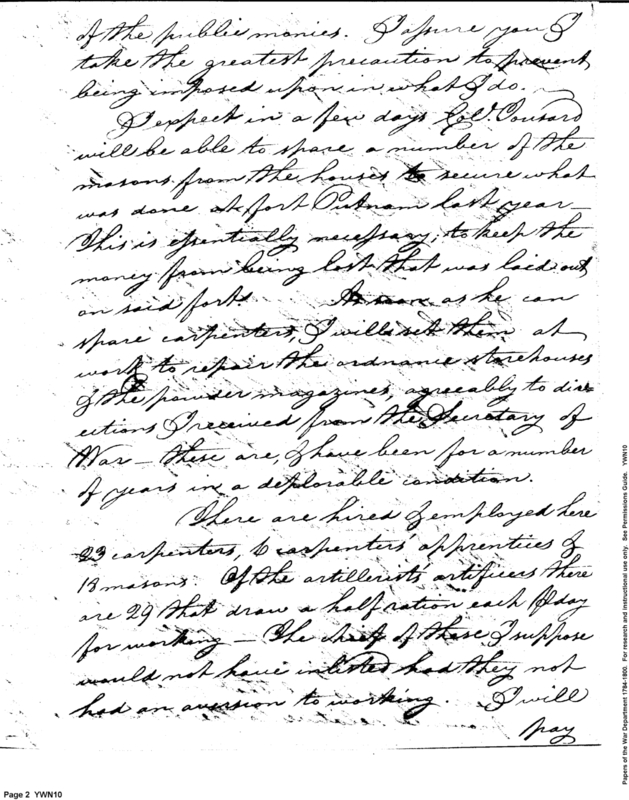 of the public monies. I assure you I
take the greatest precaution to prevent
being imposed upon in what I do.
I expect in a few days Col.
will be able to spare a number of the
masons from the houses to secure what
was done at fort Putnam last year—
This is essentially necessary, to keep the
money from being lost that was laid out
on said fort. As soon as he can
spare carpenters, I will set them at
work to repair the ordnance storehouses
& the powder magazines, agreeably to dir-
ections I received from the Secretary of
War — these are, & have been for a number
of years in a deplorable condition.
There are hired & employed here
23 carpenters, 6 carpenters' apprentices &
18 masons. Of the artillerists' artificers there
are 29 that draw a half ration each day
for working — The chief of these I suppose
would not have inlisted had they not
had an aversion to working. I will
pay
Page 2 YWN10
Papers of the War Department 1784-1800. For research and instructional use only. See Permissions Guide. YWN10